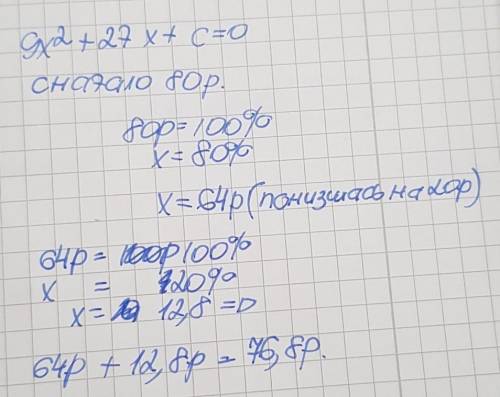 9x²+27x+c=0
сначало 80р.
80р=100%
x=80%
x=64р(понизилась на 20р)
64р=100%
x = 20%
x= 12,8 =D
64р + 12,8р = 76,8р.